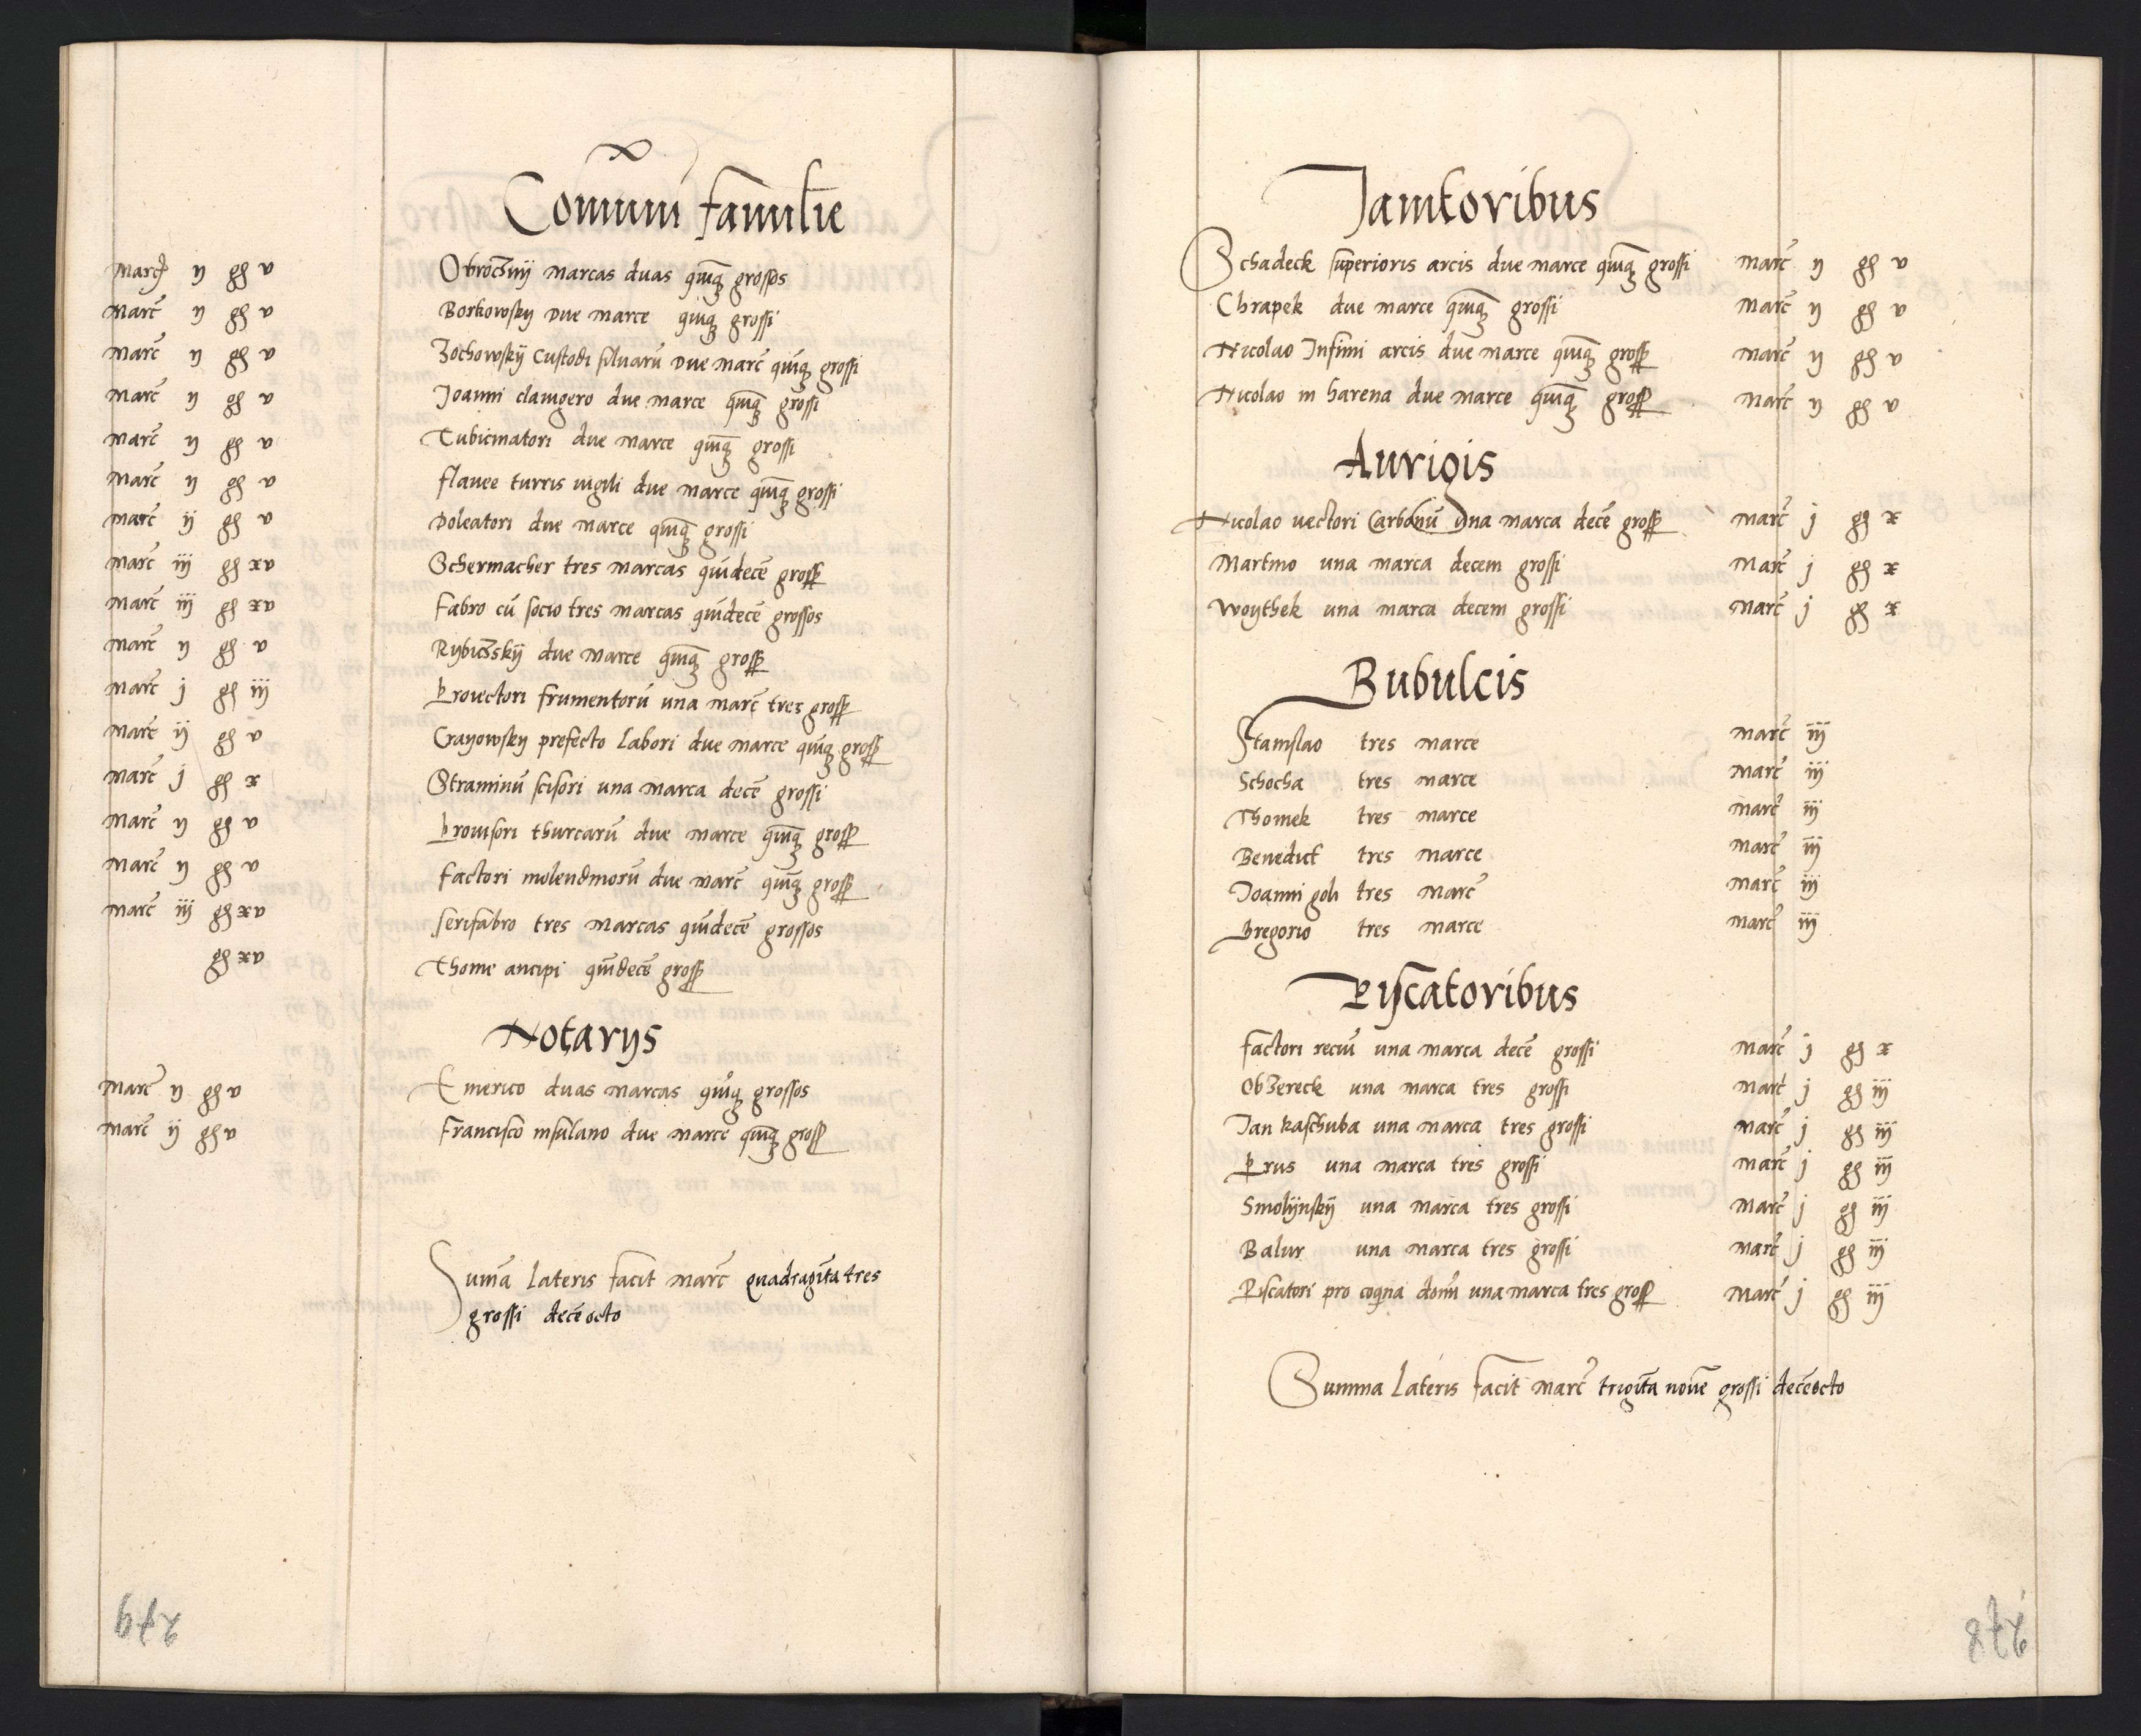 Comuni familie
Marcę ij gß v Obroczny marcas duas quīqȝ grossos
Marc̄ ij gß v Borkowsky due marce quīqȝ grossi
Marc̄ ij gß v Zochowsky Custodi siluarū due marc̄ quīqȝ grossi
Marc̄ ij gß v Joanni clauigero due marce quīqȝ grossi
Marc̄ ij gß v Tubicinatori due marce quīqȝ grossi
Marc̄ ij gß v flauee turris uigili due marce quīqȝ grossi
Marc̄ ij gß v Doleatori due marce quīqȝ grossi
Marc̄ iij gß xv Schermacher tres marcas quīdecē gross
Marc̄ iij gß xv Fabro cū socio tres marcas quīdecē grossos
Marc̄ ij gß v Rybiczsky due marce quīqȝ gross
Marc̄ j gß iij Prouectori frumentorū una marc̄ tres gross
Marc̄ ij gß v Crayowsky prefecto labori due marce quīqȝ gross
Marc̄ j gß x Straminū scisori una marca decē grossi
Marc̄ ij gß v Prouisori thurcarū due marce quīqȝ gross
Marc̄ ij gß v Factori molendinorū due marc̄ quīqȝ gross
Marc̄ iij gß xv serifabro tres marcas quīdecē grossos
gß xv Thome ancipi quīdecē gross
Notarijs
Marc̄ ij gß v Emerico duas marcas quīqȝ grossos
Marc̄ ij gß v Francisco insulano due marce quīqȝ gross
Sum̄a lateris facit marc̄ quadragīta tres
grossi decē octo
279
Janitoribus
Schadeck superioris arcis due marce quīqȝ grossi Marc̄ ij gß v
Chrapek due marce quīqȝ grossi Marc̄ ij gß v
Nicolao Infimi arcis due marce quīqȝ gross Marc̄ ij gß v
Nicolao in harena due marce quīqȝ gross Marc̄ ij gß v
Aurigis
Nicolao uectori Carbonū una marca decē gross Marc̄ j gß x
Martino una marca decem grossi Marc̄ j gß x
Woythek una marca decem grossi Marc̄ j gß x
Bubulcis
Stanislao tres marce Marc̄ iij
Schocha tres marce Marc̄ iij
Thomek tres marce Marc̄ iij
Benedict tres marce Marc̄ iij
Joanni goli tres marc̄ Marc̄ iij
Gregorio tres marce Marc̄ iij
Piscatoribus
factori reciū una marca decē grossi Marc̄ j gß x
Obzereck una marca tres grossi Marc̄ j gß iij
Jan kaschuba una marca tres grossi Marc̄ j gß iij
Prus una marca tres grossi Marc̄ j gß iij
Smolynsky una marca tres grossi Marc̄ j gß iij
Balur una marca tres grossi Marc̄ j gß iij
Piscatori pro coqina domī una marca tres gross Marc̄ j gß iij
Summa lateris facit marc̄ trigīta nouē grossi decē octo
278